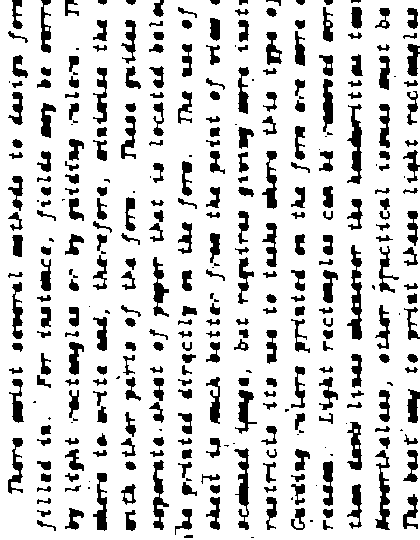 There exist several methods to design form
filled in. For instance, fields may be surro
by light rectangles or by guiding rulers. T
where to write and, therefore, minimize the
with other parts of the form. These guides
separate sheet of paper that is located below
be printed directly on the form. The use of
sheet is much better from the point of view o
scanned image, but requires giving more instr
restricts its use to tasks where this type of
Guiding rulers printed on the form are more
reason. Light rectangles can be removed more
than dark lines whenever the handwritten tou
Nevertheless, other practical issues must be
The best way to print these light rectangles